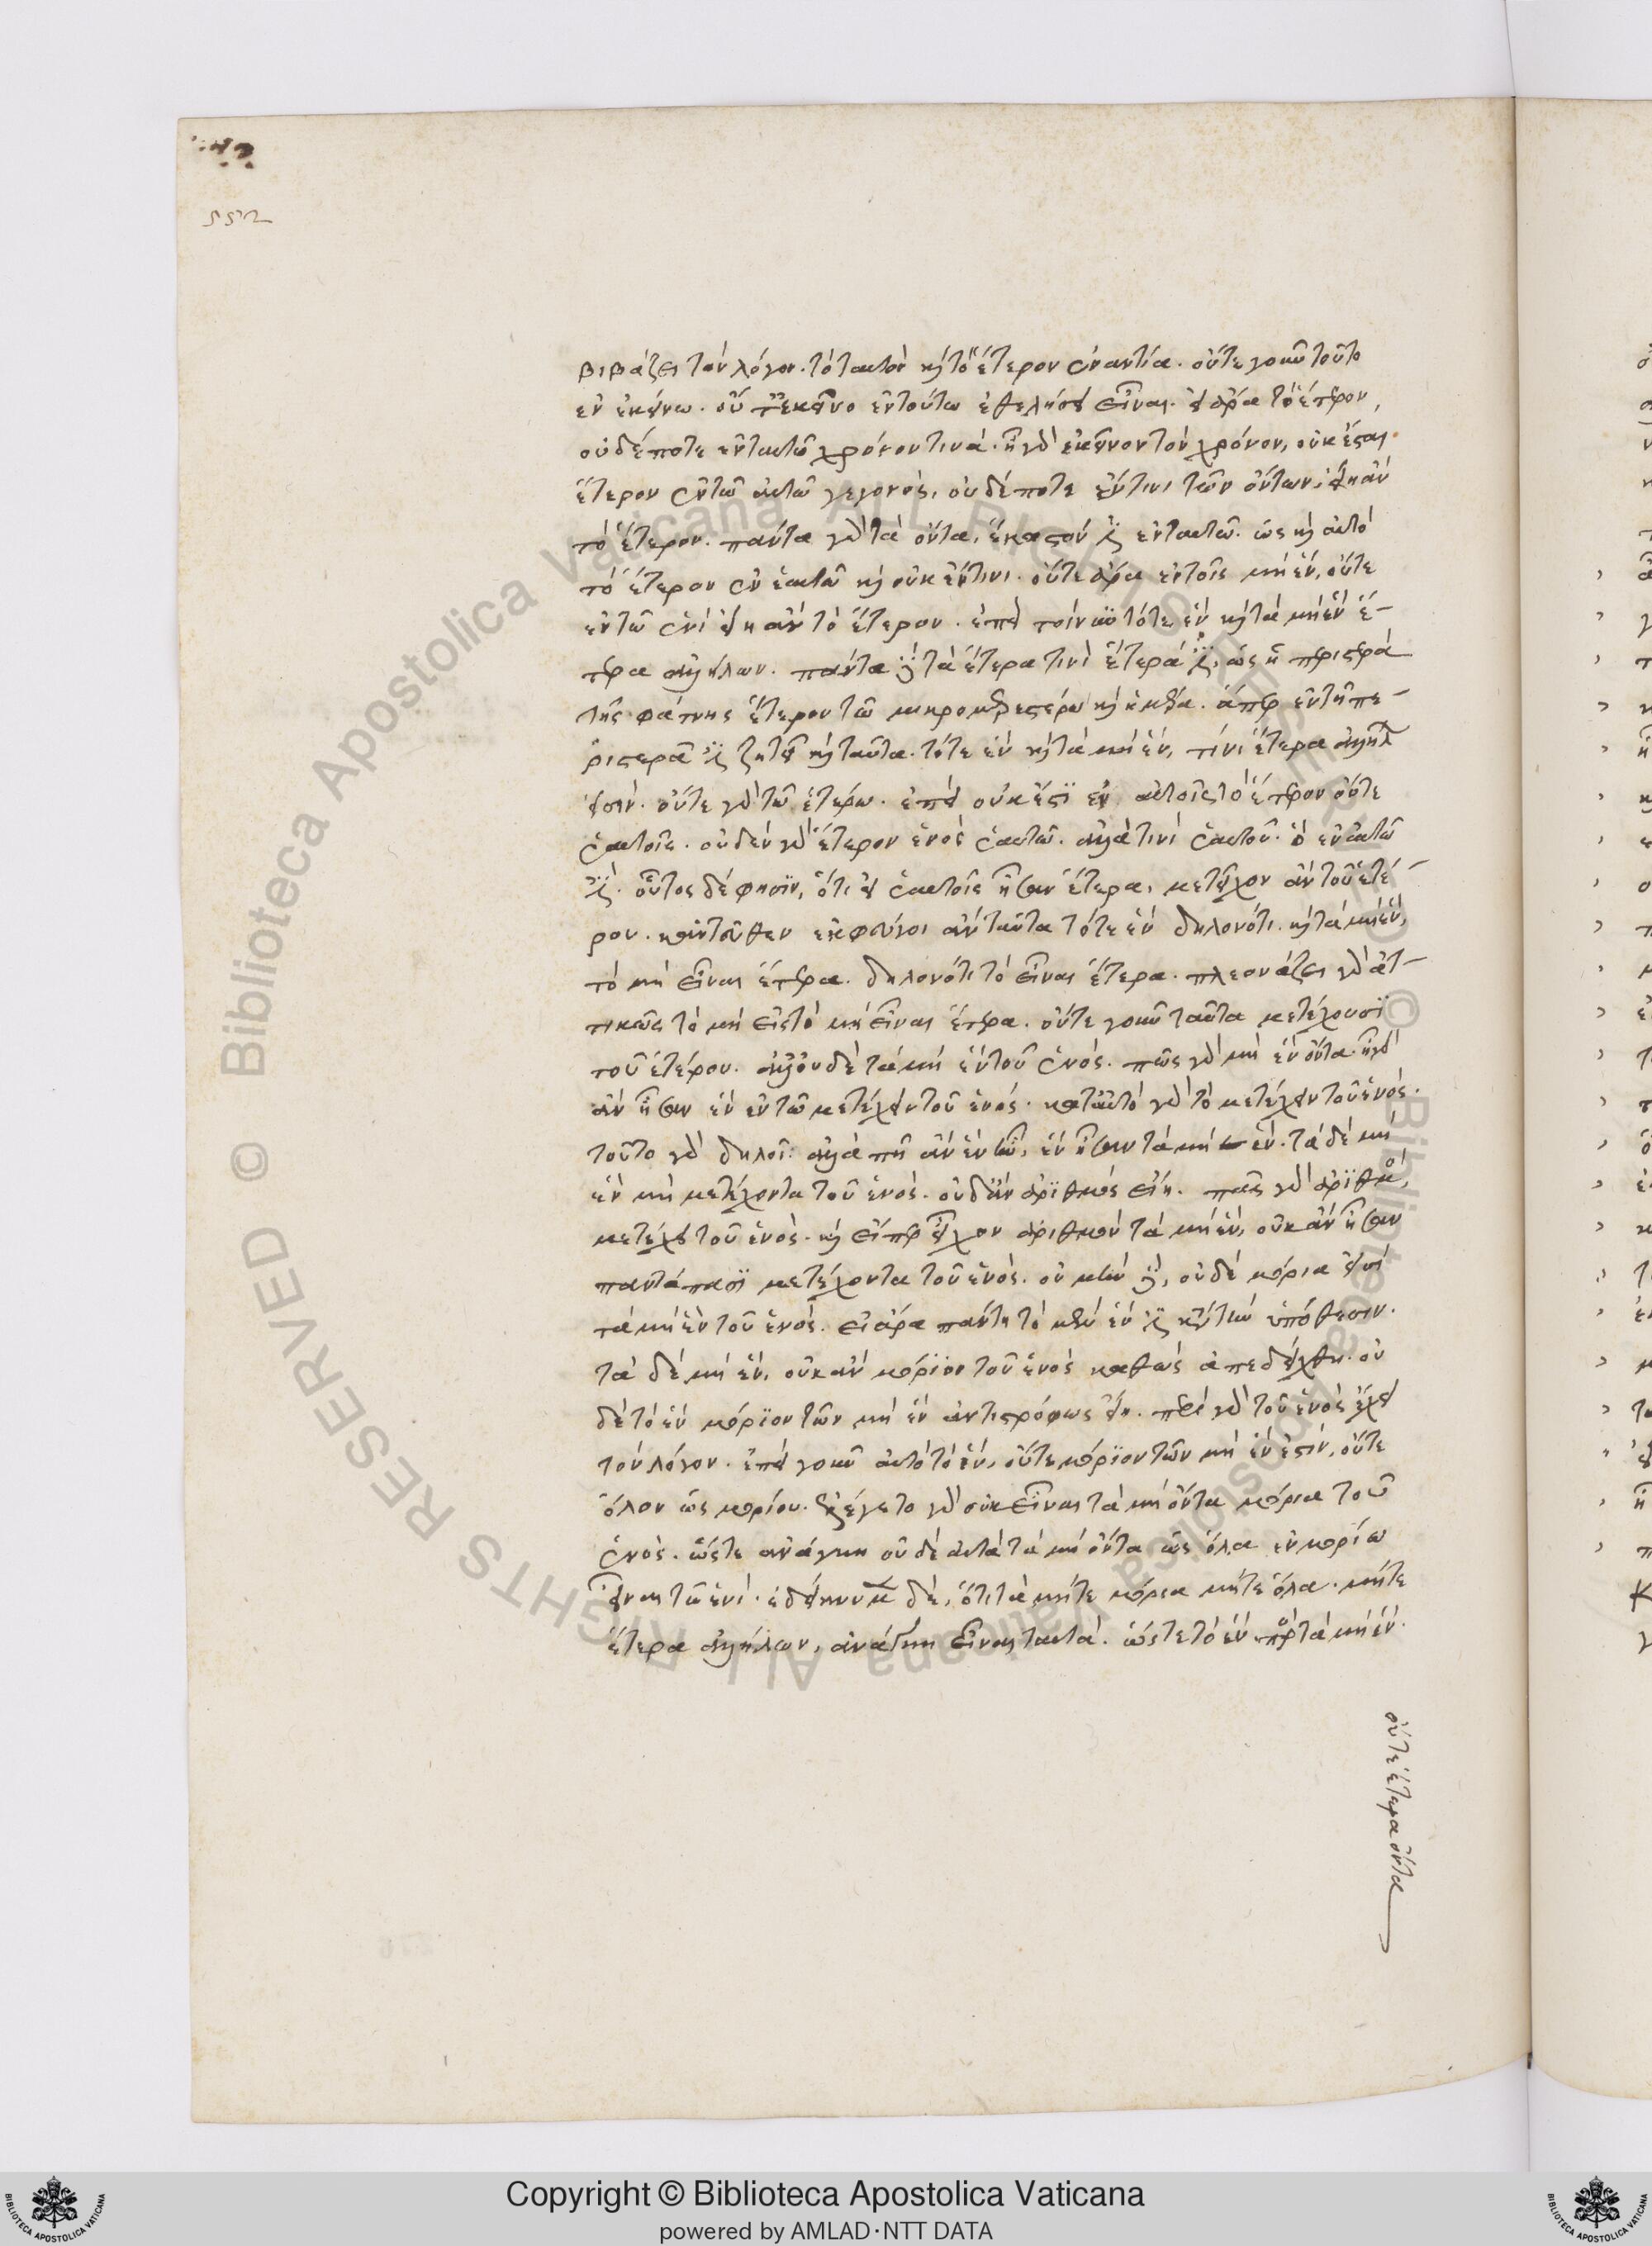 βιβάζει τὸν λόγον. τὸ ταυτὸν καὶ τὸ ἕτερον ἐναντία. οὔτε γοῦν τοῦτο
ἐν ἐκείνω. οὔτ' ἐκεῖνο ἐν τούτω ἐθελήσει εἶναι. εἰ ἄρα τὸ ἕτερον,
οὐδέποτε ἐν ταυτῶ χρόνον τινὰ. ἢ γὰρ ἐκεῖνον τὸν χρόνον, οὐκ ἔσται
ἕτερον ἐν τῶ αὐτῶ γεγονὸς, οὐδέποτε ἔν τινι τῶν ὄντων, εἴη ἂν
τὸ ἕτερον. πάντα γὰρ τὰ ὄντα, ἕκαστόν ἐστιν ἐν ταυτῶ. ὡς καὶ αὐτὸ
τὸ ἕτερον ἐν ἑαυτῶ καὶ οὐκ ἔν τινι. οὔτε ἄρα ἐν τοῖς μὴ ἓν, οὔτε
ἐν τῶ ἑνὶ εἴη ἂν τὸ ἕτερον. ἐπεὶ τοίνυν τότε ἓν καὶ τὰ μὴ ἓν ἕ-
τερα ἀλλήλων. πάντα δὲ τὰ ἕτερα τινὶ ἕτερά ἐστιν, ὡς ἡ περιστερὰ
τῆς φάττης ἕτερον τῶ
ριστερᾶ ἐστι ζητεῖ καὶ ταῦτα. τότε ἓν καὶ τὰ μὴ ἓν, τίνι ἕτερα ἀλλήλων
εἰσίν. οὔτε γὰρ τῶ ἑτέρω. ἐπεὶ οὐκ ἔστιν ἐν αὐτοῖς τὸ ἕτερον οὔτε
ἑαυτοῖς. οὐδὲν γὰρ ἕτερον ἑνὸς ἑαυτῶ. ἀλλὰ τινὶ ἑαυτοῦ. ὃ ἐν αὐτῶ
ἐστι. οὗτος δέ φησιν, ὅτι εἰ ἑαυτοῖς ἦσαν ἕτερα, μετεῖχον ἂν τοῦ ἑτέ-
ρου. κἀντεῦθεν ἐκφεύγοι ἂν ταῦτα τότε ἓν δηλονότι. καὶ τὰ μὴ ἓν,
τὸ μὴ εἶναι ἕτερα. δηλονότι τὸ εἶναι ἕτερα. πλεονάζει γὰρ ἀτ-
τικῶς τὸ μὴ εἰς τὸ μὴ εἶναι ἕτερα. οὔτε γοῦν ταῦτα μετέχουσι
τοῦ ἑτέρου. ἀλλ' οὐδὲ τὰ μὴ ἓν τοῦ ἑνός. πῶς γὰρ μὴ ἓν ὄντα. ἢ γὰρ
ἂν ἦσαν ἓν ἐν τῶ μετέχειν τοῦ ἑνός. κατ' αὐτὸ γὰρ τὸ μετέχειν τοῦ ἑνός.
τοῦτο γὰρ δηλοῖ. ἀλλὰ πῆ ἂν ἓν ἦν, ἓν ἦσαν τὰ μὴ ἓν. τὰ δὲ μὴ
ἓν μὴ μετέχοντα τοῦ ἑνὸς. οὐδ' ἂν ἀριθμὸς εἴη. πᾶς γὰρ ἀριθμὸς,
μετέχει τοῦ ἑνὸς. καὶ εἴπερ εἶχον ἀριθμὸν τὰ μὴ ἓν, οὐκ ἂν ἦσαν
παντάπασι μετέχοντα τοῦ ἑνὸς. οὐ μὴν δὲ, οὐδὲ μόρια εἰσὶ
τὰ μὴ ἓν τοῦ ἑνὸς. εἰ ἄρα πάντη τὸ μὲν ἕν ἐστι κατὰ τὴν ὑπόθεσιν.
τὰ δὲ μὴ ἓν, οὐκ ἂν μόριον τοῦ ἑνὸς καθὼς ἀπεδείχθη. οὐ
δὲ τὸ ἓν μόριον τῶν μὴ ἓν ἀντιστρόφως εἴη. περὶ γὰρ τοῦ ἑνὸς ἔχει
τὸν λόγον. ἐπεὶ γοῦν αὐτὸ τὸ ἓν, οὔτε μόριον τῶν μὴ ἕν ἐστιν, οὔτε
ὅλον ὡς μορίου. ἐλέγετο γὰρ οὐκ εἶναι τὰ μὴ ὄντα μόρια τοῦ
ἑνὸς. ὥστε ἀνάγκη οὐδὲ αὐτὰ τὰ μὴ ὄντα ὡς ὅλα ἐν μορίω
εἶναι τῶ ἑνὶ. ἐδείκνυμεν δὲ, ὅτι τὰ μήτε μόρια μήτε ὅλα. μήτε
ἕτερα ἀλλήλων, ἀνάγκη εἶναι ταυτὰ. ὥστε τὸ ἓν πρὸς τὰ μὴ ἓν.
οὔτε ἕτερα ὄντα
Copyright © Biblioteca Apostolica Vaticana
powered by AMLAD·NTT DATA
© Biblioteca Apostolica Vaticana ALL RIGHTS RESERVED